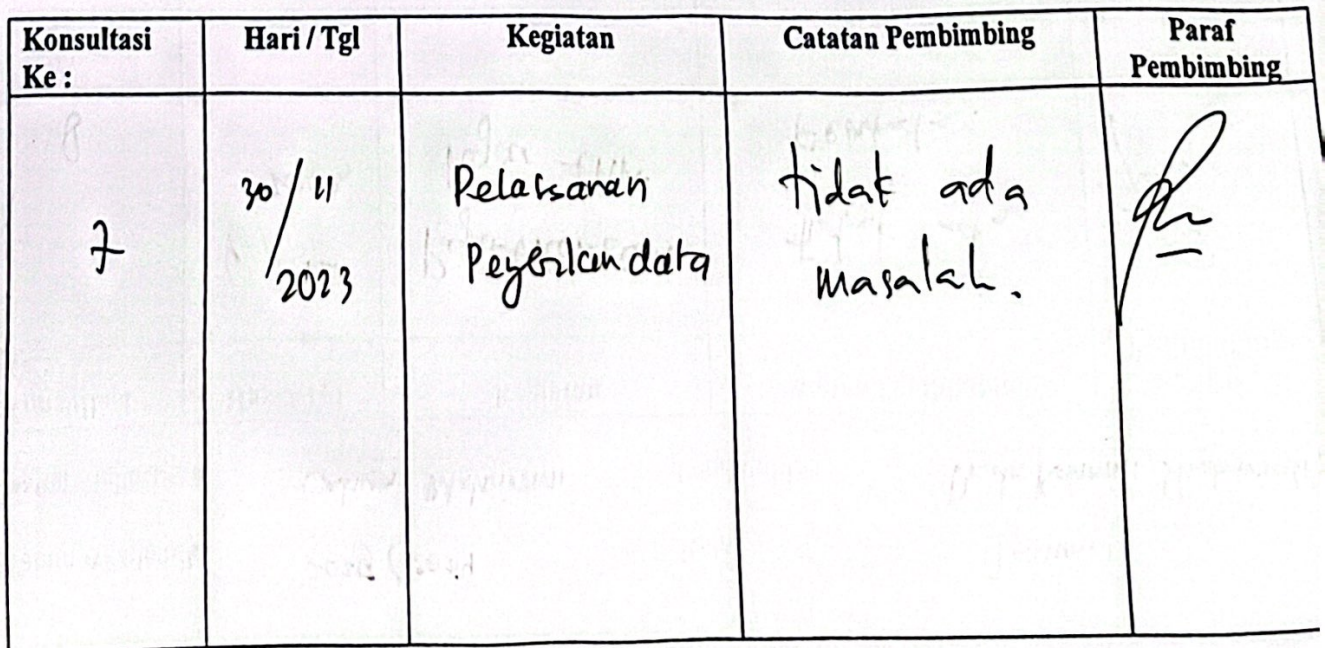 Konsultasi Ke :
Hari / Tgl
Kegiatan
Catatan Pembimbing
Paraf Pembimbing
7
30/11/2023
Pelaksanan
data
tidak ada
masalah.